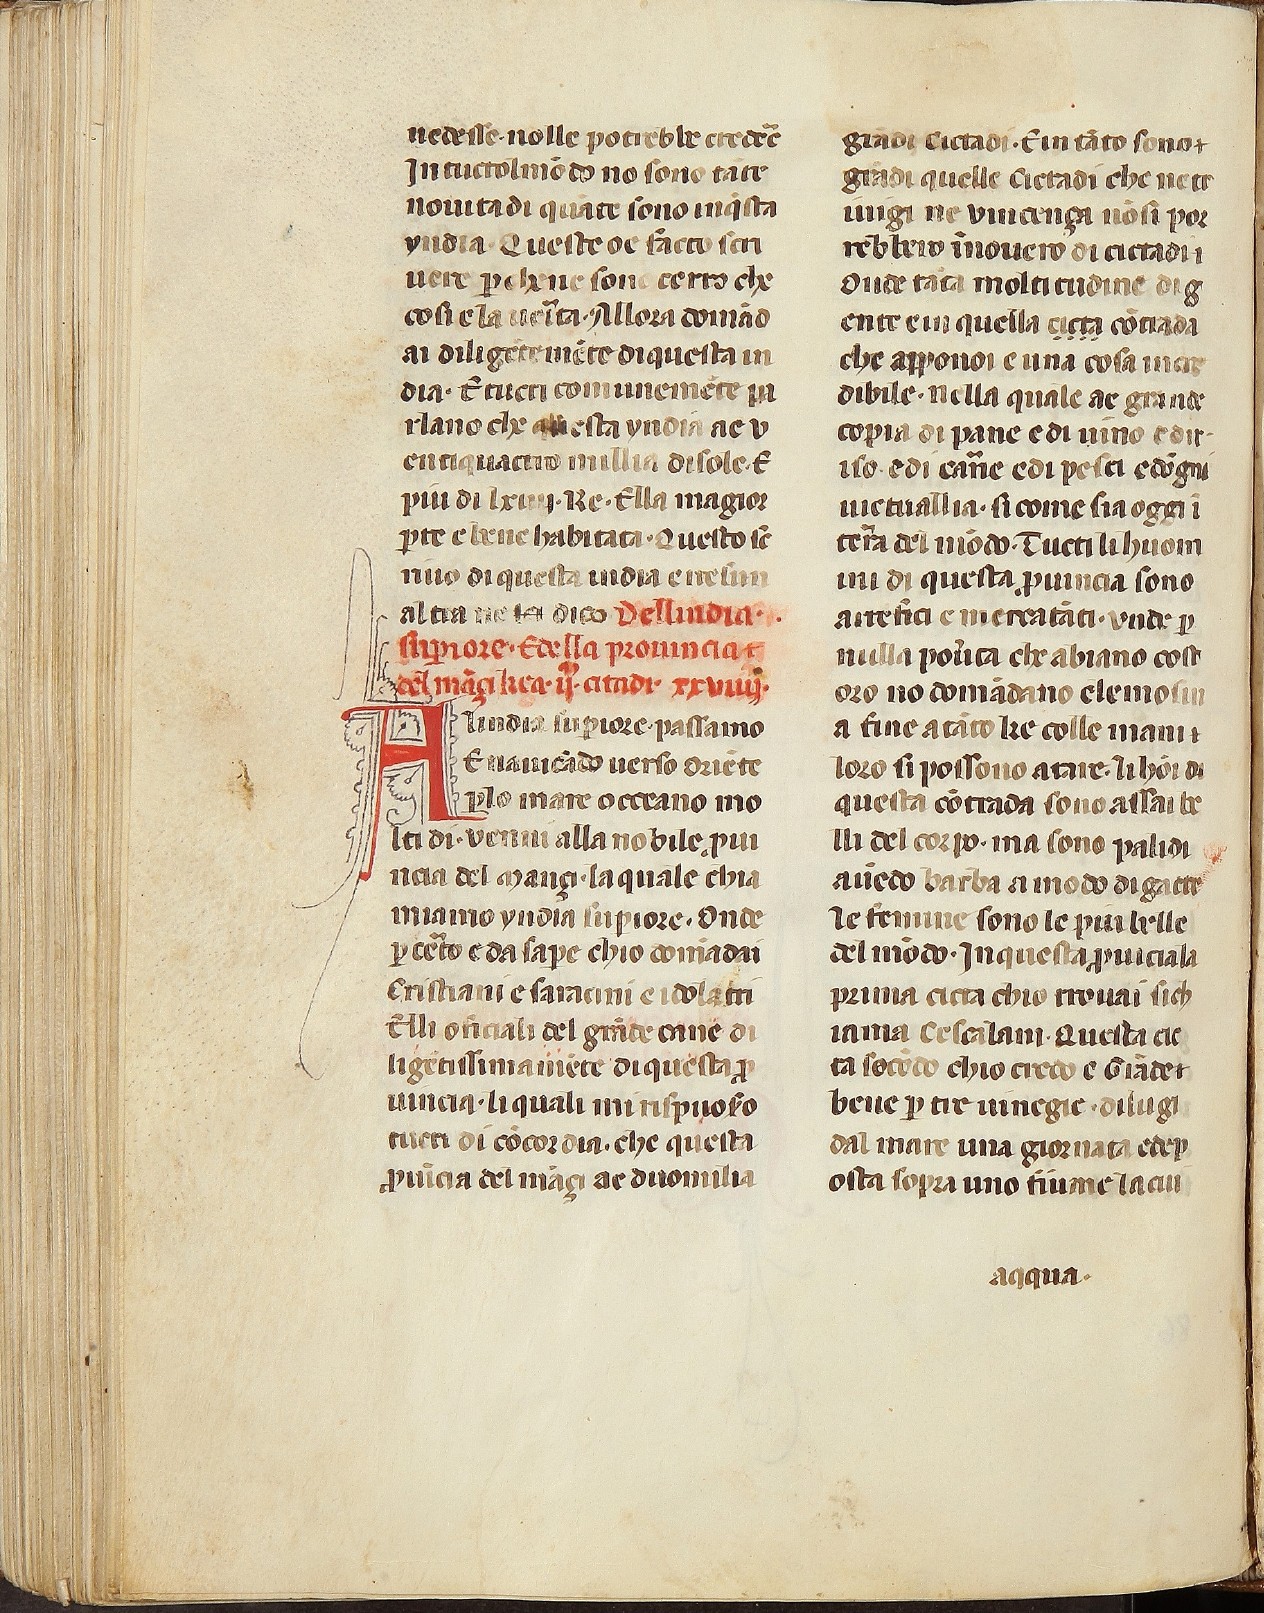 uedesse·nolle potrebbe credeř
In tuctolmōdo no sono tāte
nouitadi quāte sono inq̄sta
yndia· Queste oe fācto scri
uere ꝑ chene sono certo che
cosi e la ueřita·Allora domād
ai diligētemēte diquesta in
dia· E tucti comunemēte pa
rlano che questa yndia ae v
entiquactro milllia disole·E
piu di lxiiij·Re·Ella magior
ꝑte e bene habitata·Questo sc̄
riuo di questa india e nesun
altra ne la dico Dellindia·
suꝑiore·Edella prouincia
del māçi ke a·ij̄·citadi· xxviiij·
Allindia suꝑiore·passamo
E nauicādo uerso oriēte
ꝑlo mare occeano mo
lti di·venni alla nobile ꝓui
ncia del Mançi·la quale chia
miamo yndia suꝑiore·Onde
ꝑ ceřto e da saꝑe chio domādai
Cristiani e saracini e idolatri
Elli oficiali del grāde cane di
ligētissimamēte di questa ꝓ
uincia·li quali mi rispuoso
tucti di cōcordia·che questa
ꝓuīcia del māçi ae duomilia
grādi Cictadi·E in tāto sono⁊
grādi quelle Cictadi che ne tr
iuigi ne vincença nōsi por
rebbero īnouero di cictadi i
Onde tāta moltitudine di g
ente e in quella cicta cōtrada
che apponoi e una cosa incre
dibile·Nella quale ae grande
copia di pane e di uino e di r
iso·e di carñe e di pesci e dōgni
uictuallia·si come sia oggi ī
teřa del mōdo·Tucti li huom
ini di questa ꝓuincia sono
artefici e mercatāti·vnde ꝑ
nulla pou̇ta che abiano cost
oro no domādano elemosin
a fine a tāto ke colle mani⁊
loro si possono atare·li hōi di
questa cōtrada sono assai be
lli del corpo·ma sono palidi
auēdo barba a modo di gatte
le femine sono le piu belle
del mōdo·In questa ꝓuīcia la
prima cicta chio trouai sich
iama Cescalani·Questa cic
ta secōdo chio credo e Grāde⁊
bene ꝑ tre uinegie·dilugi
dal mare una giornata edep
osta sopra uno fiume la cui
aqqua·